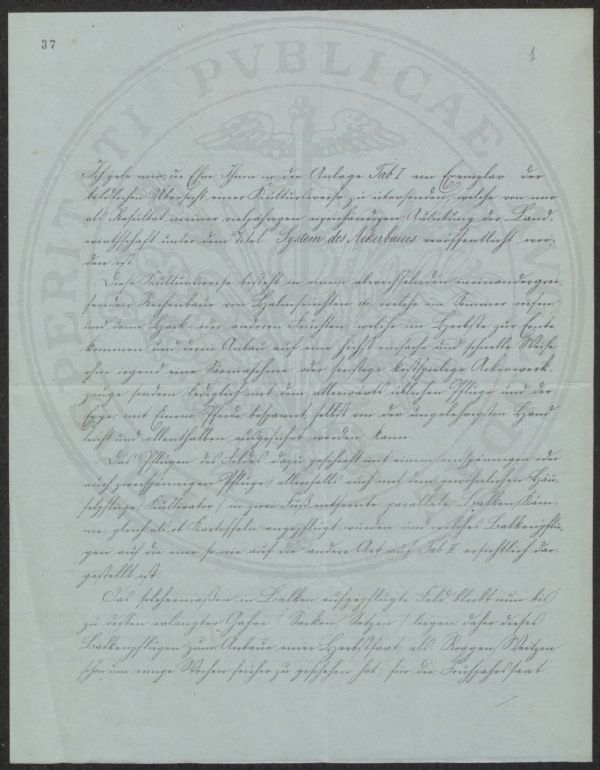 37
1
PERITI PVBLICAE
Ich gebe mir die Ehre Ihnen in der Anlage Tab I ein Exemplar der
bildlichen Übersicht einer Kulturweise zu übersenden, welche von mir
als Resultat meiner vieljährigen eigenhändigen Ausübung der Land-
wirthschaft unter dem Titel System des Ackerbaues veröffentlicht wor-
den ist.
Diese Kulturweise besteht in einem abwechselnden ineinandergrei-
fenden Reihenbaue von Halmfrüchten etc welche im Sommer reifen,
und dann Hack- oder anderen Früchten, welche im Herbste zur Ernte
kommen und deren Anbau auf eine höchst einfache und schnelle Weise
ohne irgend eine Säemaschine oder sonstige kostspielige Ackerwerk-
zeuge sondern lediglich mit dem allerwärts üblichen Pfluge und der
Egge mit Einem Pferde bespannt, selbst von der ungelehrigsten Hand
leicht und allenthalben ausgeführt werden kann.
Das Pflügen des Feldes dazu geschieht mit einem einspännigen oder
auch zweispännigen Pfluge / allenfalls auch mit dem gewöhnlichen Häu-
felpfluge, Kultivator / in zwei Fuß entfernte parallele Balken, Käm-
me, gleich als ob Kartoffeln angepflügt würden und welches Balkenpflü-
gen auf die eine sowie auf die andere Art auf Tab II ersichtlich dar-
gestellt ist.
Das solchermaßen in Balken aufgepflügte Feld bleibt nun bis
zu dessen erlangter Gahre / Sacken, Setzen / liegen daher dieses
Balkenpflügen zum Anbaue einer Herbstsaat, als Roggen, Weitzen
schon um einige Wochen früher zu geschehen hat, für die Frühjahrssaat